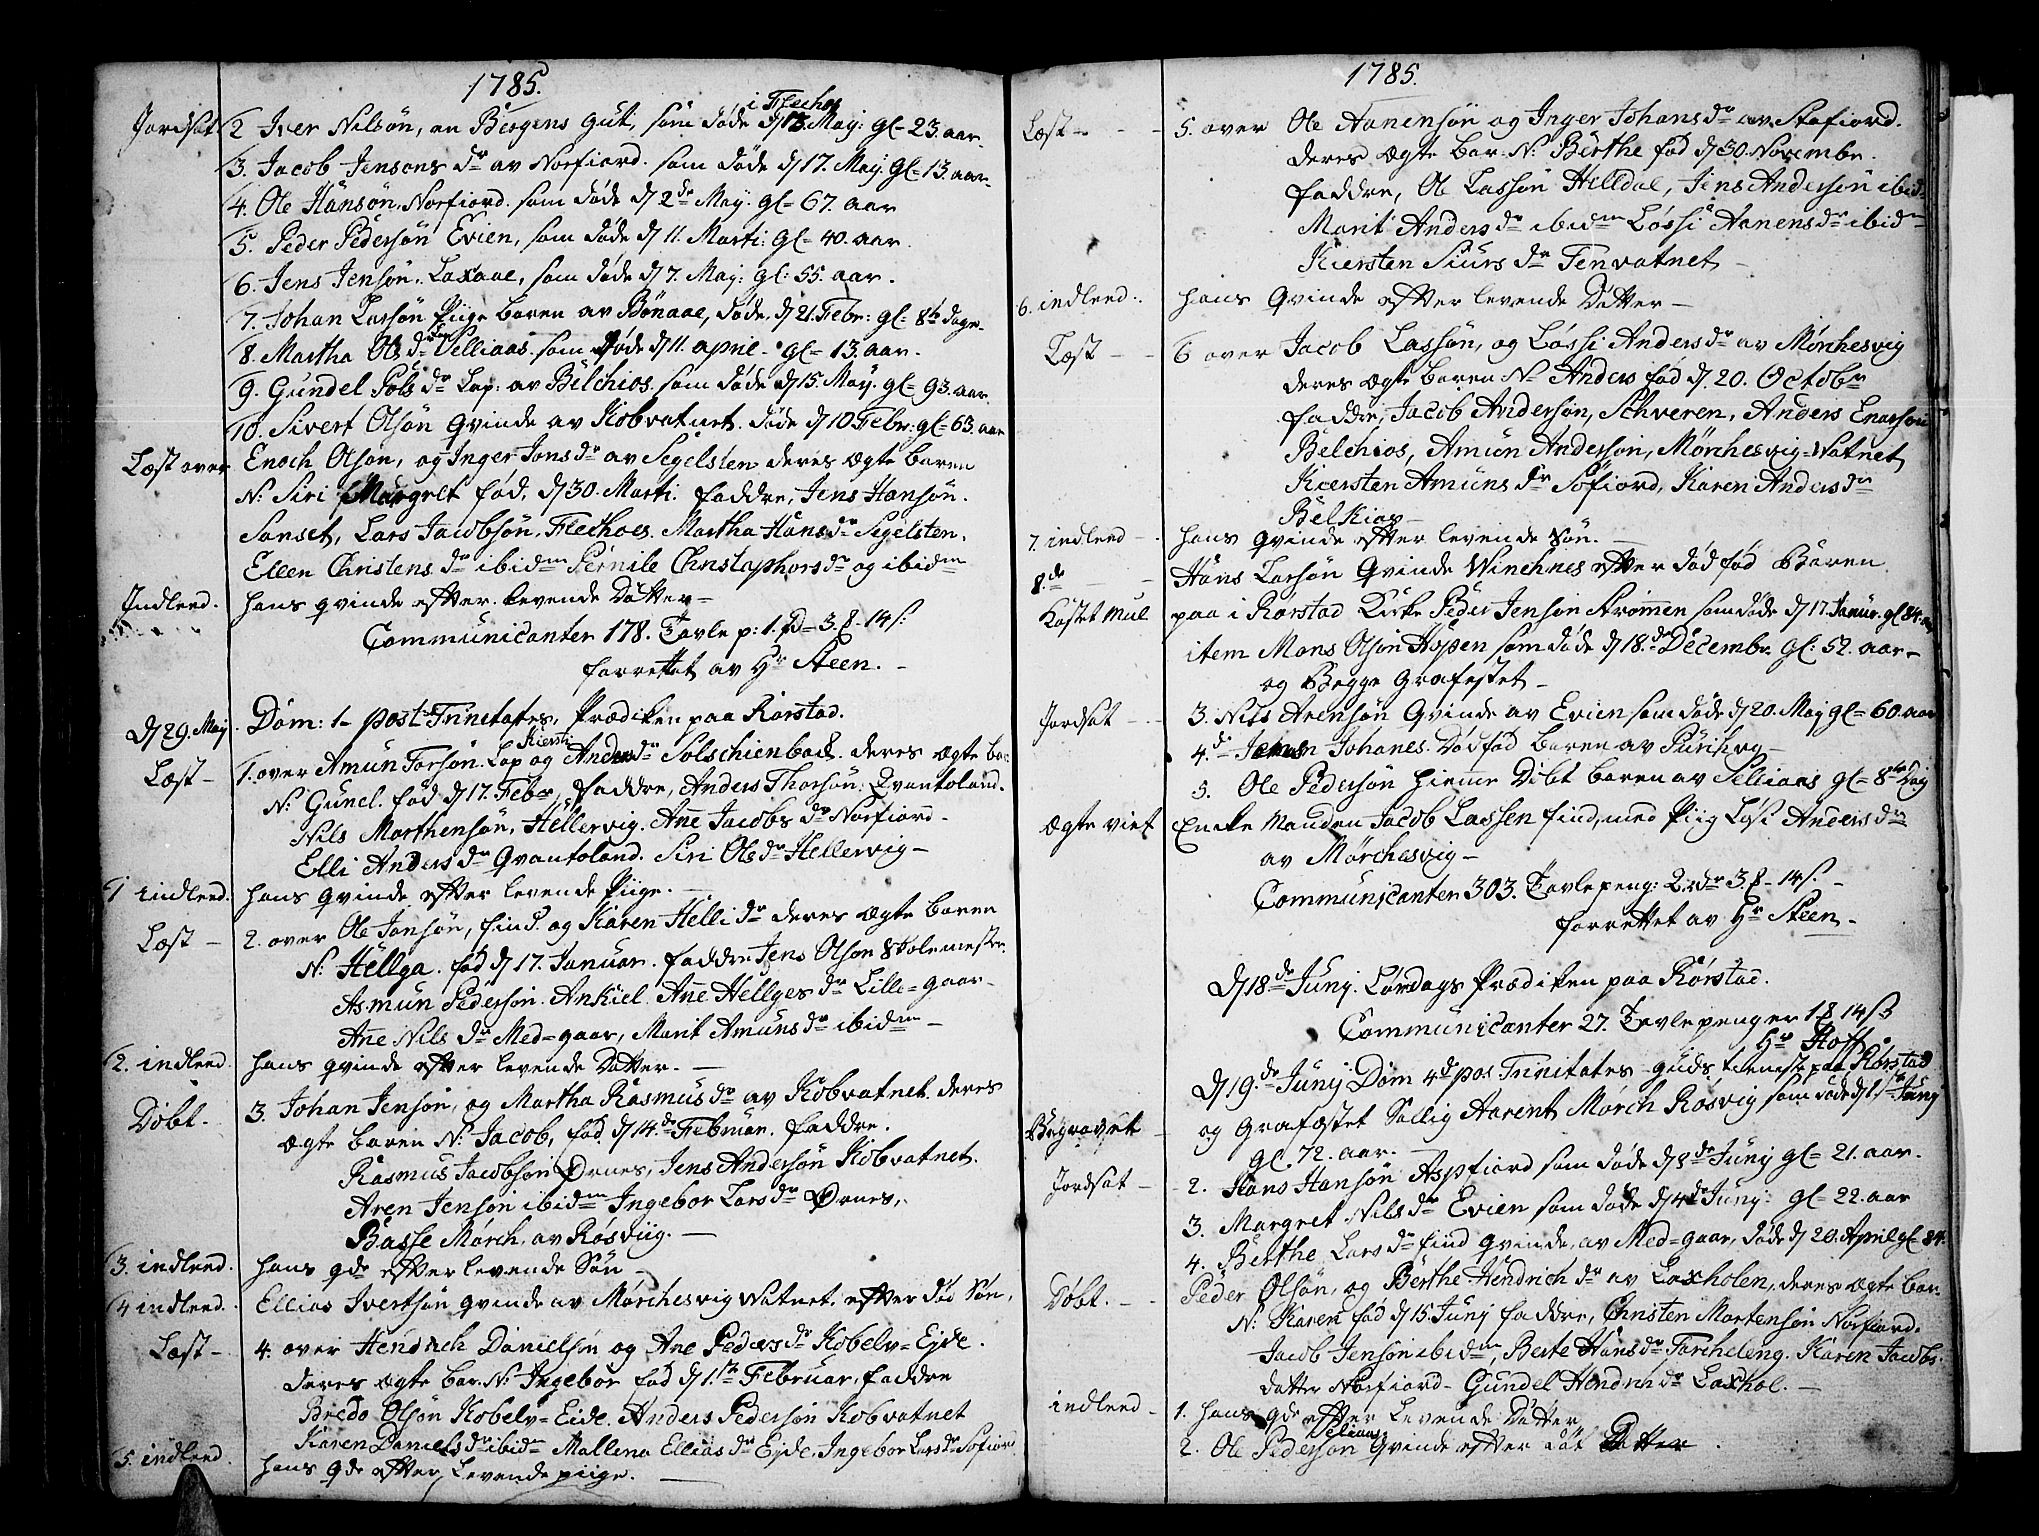 1785.
i Flechos
Jordsat 2 Iver Nilsøn, en Bergens gut, som døde d 13. May: gl= 23. aar
3. Jacob Jensons dr av Norfiord. som døde d 17. May. gl= 13. aar.
4. Ole Hansøn, Norfiord. som døde d 2de May. gl= 67. aar
5. Peder Pedersøn Evien, som døde d 11. Marti: gl= 40. aar.
6. Jens Jensøn. Laxaae, som døde d 7. May. gl: 55. aar.
7. Johan Larsøn Piige baren av Bonaae, døde, d 21. Febr: gl= 8te dage.
8. Martha Ols dr Velliaas som døde d 11. april. gl= 13. aar.
9. Gundel Pols dr Lap: av Belchios. som døde d 15. May. gl= 93. aar.
10. Sivert Olsøn qvinde av Kobvatnet. døde d 10 Febr: gl= 63. aar
Læst over Enoch Olsøn, og Inger Jons dr av Segelsten deres ægte baren
N: Siri Margret fød, d 30. Marti. faddre, Jens Hansøn.
Sanset, Lars Jacobsøn, Flechoes. Martha Hans dr Segelsten.
Ellen Christens dr ibidm Pernile Christophors dr og ibidm
Indleed. hans qvinde efter levende Datter=
Communicanter 178. Tavle p: 1. rd= 3. ß- 14 s:
forrettet av Hr Steen. -
d 29. May Dom: 1- post Trinitates, Prædiken paa Rorstad.
Kiersti
Læst- 1. over Amun Torsøn. Lap og Anders dr Solschienbach. deres ægte ba:
N: Gunel. fød d 17. Febr, faddre, Anders Thorsøn: Qvantoland.
Nils Morthensøn, Hellervig. Ane Jacobs dr Norfiord-
Elli Anders dr Qvantoland. Siri Ols dr Hellervig-
1 indleed. hans qvinde efter levende Piige. -
Læst- 2. over Ole Jonsøn, find. og Karen Helli dr deres ægte baren
N: Hellga. fød d 17. Januar. faddre Jens Olsøn Skolemester
Asmun Pedersøn. Ankiel. Ane Hellges dr Lille= gaar-
Ane Nils dr Med= gaar, Marit Amuns dr ibidm-
2. indleed. hans qvinde efter levende Datter. -
Døbt. 3. Johan Jensøn, og Martha Rasmus dr av Kobvatnet. deres
ægte baren N: Jacob, fød d 14de Februar. faddre.
Rasmus Jacobsøn Ørnes, Jens Andersøn Kobvatnet.
Aren Jensøn ibidm Ingebor Lars dr Ørnes,
Basse Mørch. av Røsviig. -
3. indleed. hans qde efter levende Søn-
4 indleed. Ellias Ivertsøn qvinde av Mørchesvig Watnet. efter død Søn.
Læst- 4. over Hendrich Danielsøn og Ane Peders dr Kobelv= Ejde.
deres ægte bar. N: Ingebor fød d 1.te Februar, faddre
Bredo Olsøn Kobelv= Eide. Anders Pedersøn Kobvatnet
Karen Daniels dr ibidm Mallena Ellias dr Ejde, Ingebor Lars dr Sofiord
5. indleed. hans qde efter levende piige. -
1785.
Læst- - - 5. over Ole Aanensøn og Inger Johans dr av Stofiord.
deres ægte bar: N: Berthe fød d 30. Novembr.
faddre, Ole Lassøn Helldal, Jens Andersøn ibid
Marit Anders dr ibidm Løssi Aanens dr ibidm
Kiersten Siurs dr Tenvatnet-
6. indleed. hans Qvinde efter levende Datter-
Læst- - 6 over Jacob Lassøn, og Løssi Anders dr av Mørchesvig
deres ægte baren N- Anders fød d. 20. Octobr
faddre, Jacob Andersøn, Schveren, Anders Enarsøn
Belchios, Amun Andersøn, Mørchesvig= Watnet
Kiersten Amuns dr Sofiord, Karen Anders dr
Belkios-
7. indleed- hans qvinde efter levende Søn. -
8.de - - Hans Larsøn Qvinde Winchnes efter død fød Baren.
Kastet Mul paa i Rørstad Kirke Peder Jensøn Strømen som døde d 17. Januar. gl 84. aar
item Mons Olsøn Aspen som døde d 18.de Decembr. gl: 52. aar-
og Begge Grafestet-
Jordsat- - 3. Nils Arensøn Qvinde av Evien som døde d 20. May gl= 60. aar
4de Johanes. Død fød baren av Purikvg-
5. Ole Pedersøn hieme Døbt baren av Selliaas gl= 8te Dag
Ægte viet Encke Manden Jacob Lassen find, med Piig Løsi Anders dr
av Mørchesvig-
Communicanter 303. Tavle peng: 2 rdr 3. ß- 14 s. -
forrettet av Hr Steen-
d 18de Junj. Lørdags Prædiken paa Rørstad.
Communicanter 27. Tavlepenger 1 ß 14 s
Hr Hoff.
d 19.de Junj Dom 4de pos. Trinitates- guds tieneste paa Rørstad
Begravet- og Grafæstet Sallig Aarent Mørch Røsvig som døde d 1ste Junj
gl. 72. aar. -
Jordsat- 2. Hans Hansøn Aspfiord som døde d 8de Junj gl= 21. aar.
3. Margret Nils dr Evien som døde d 4de Junj: gl= 22. aar
4. Berthe Lars dr find qvinde, av Med= gaar, døde d 20. April gl 84
Døbt.- Peder Olsøn, og Berthe Hendrich dr av Laxholen, deres ægte bar
N: Karen fød d 15. Junj faddre, Christen Mortensøn Norfiord.
Jacob Jensøn ibidm, Berte Hans dr Torcheleng. Karen Jacobs
datter Norfiord- Gundel Hendrich dr Laxhol. -
indleed- 1. hans qde efter Levende Datter
Seliaas
2. Ole Pedersøn Qvinde efter død Datter.